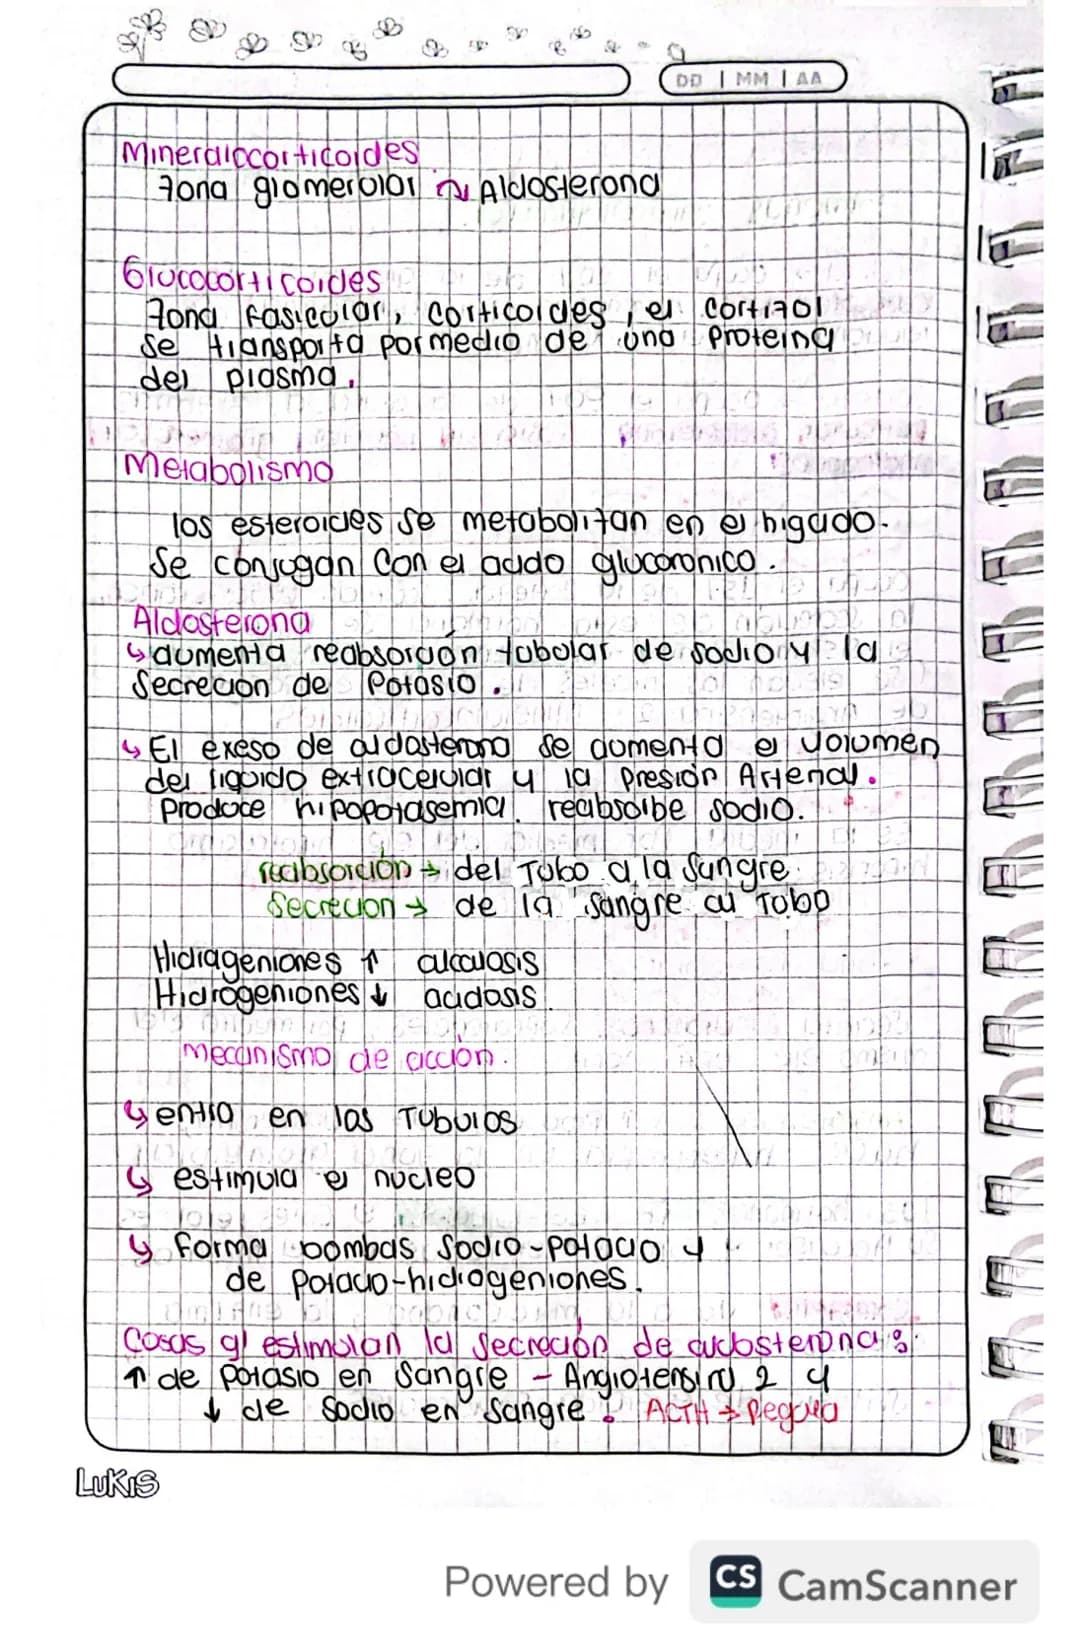 DD | MM | AA
Mineralocorticoides
Zona glomerular Aldosterona
Glucocorticoides
Zona fasicular, corticoides, el cortizol
se transporta por medio de una proteina
del plasma.
Metabolismo
los esteroides se metabolizan en el higado.
Se conjugan con el acido glucoronico.
Aldosterona
↳ aumenta reabsorción tubular de sodio y la
Secrecion de Potasio.
↳ El exeso de aldosterona se aumenta el volumen
del liquido extracelular y la Presión Arterial.
Produce hipopotasemia. reabsorbe sodio.
reabsorción → del Tubo a la Sangre.
Secrecion → de la sangre al Tubo
Hidrageniones ↑ alcalosis
Hidrogeniones ↓ acidosis
mecanismo de acción.
↳ entra en los Tubulos
↳ estimula el nucleo
↳ forma bombas Sodio-potacio y
de Potacio-hidrogeniones.
Cosas q' estimulan la secreción de aldosterona:
↑ de Potasio en Sangre - Angiotensina 2 y
↓ de Sodio en Sangre. ACTH → Regula
LUKIS
Powered by CS CamScanner